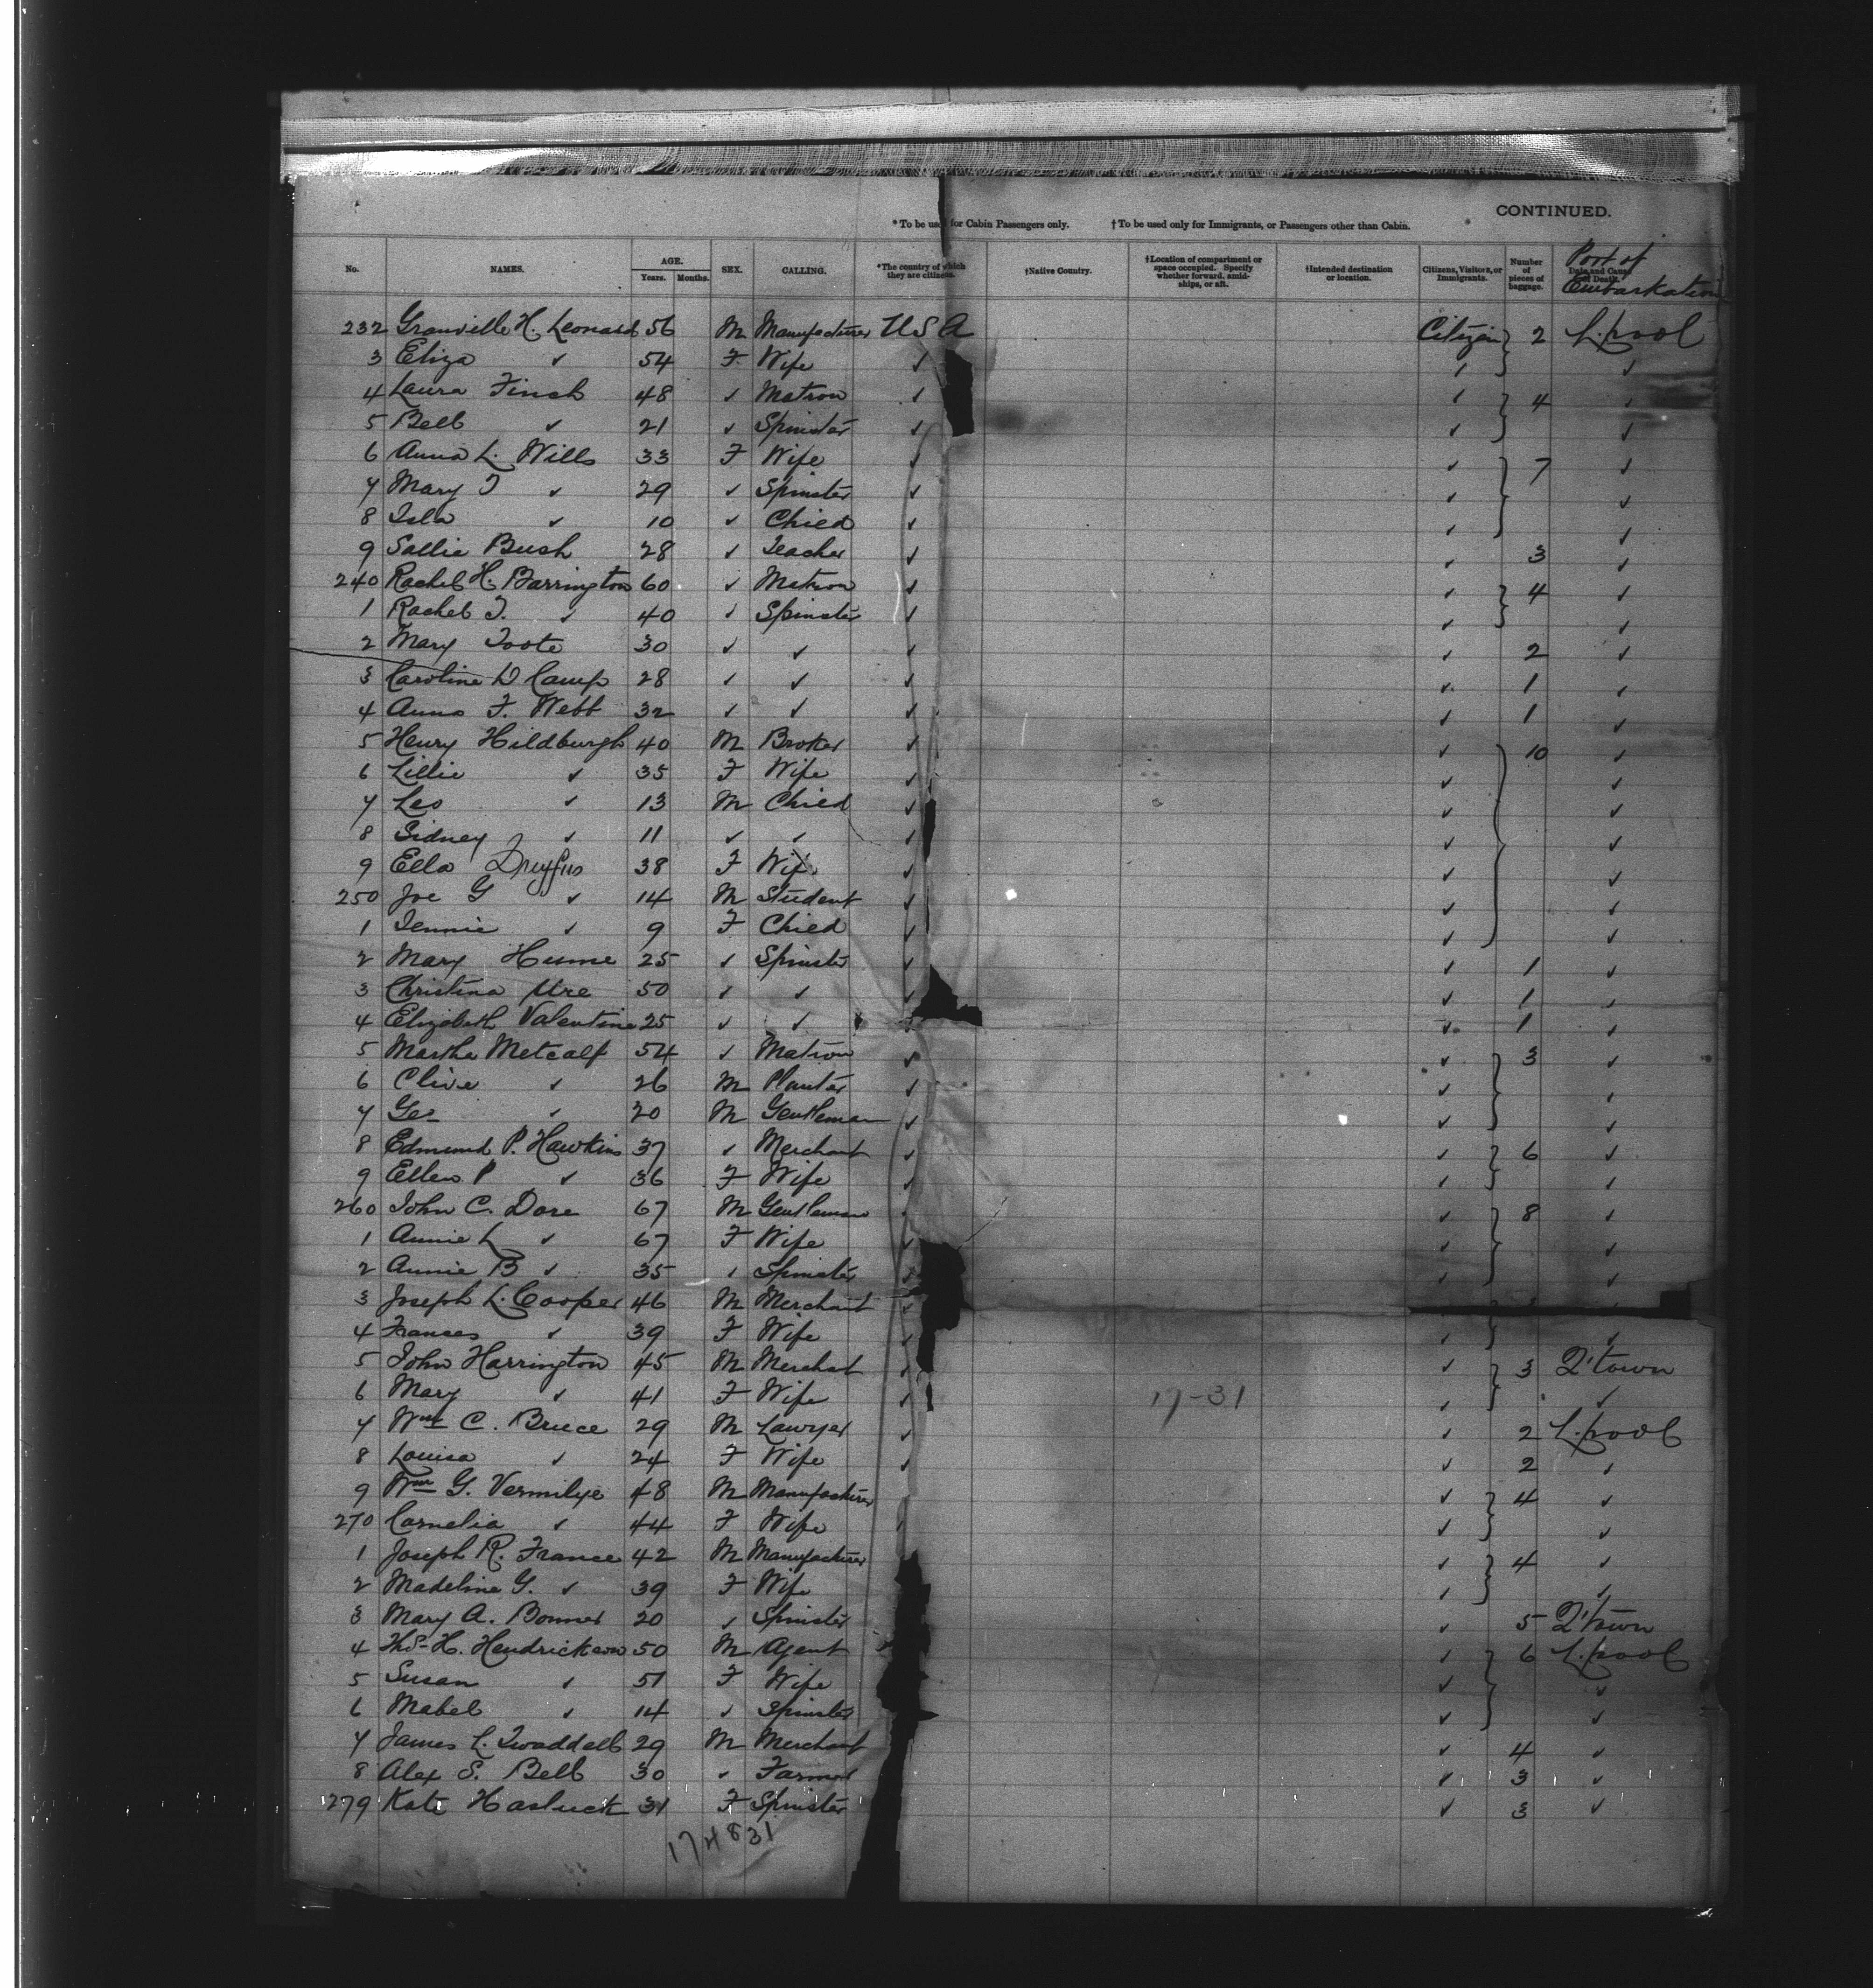 CONTINUED.
* To be used for Cabin Passengers only. † To be used only for Immigrants, or Passengers other than Cabin.
No. NAMES. AGE. Years. Months. SEX. CALLING. *The country of which they are citizens. †Native Country. †Location of compartment or space occupied. Specify whether forward, amidships, or aft. †Intended destination or location. Citizens, Visitors, or Immigrants. Number of pieces of baggage. Date and Cause of Death. Port of Embarkation
232 Granville H. Leonard 56 M Manufacturer U S A Citizen 2 L.pool
3 Eliza ✓ 54 F Wife ✓ ✓ ✓
4 Laura Finch 48 ✓ Matron ✓ ✓ 4 ✓
5 Bell ✓ 21 ✓ Spinster ✓ ✓ ✓
6 Anna L. Wills 33 F Wife ✓ ✓ 7 ✓
7 Mary T ✓ 29 ✓ Spinster ✓ ✓ ✓
8 Isla ✓ 10 ✓ Child ✓ ✓ ✓
9 Sallie Bush 28 ✓ Teacher ✓ ✓ 3 ✓
240 Rachel H. Barrington 60 ✓ Matron ✓ ✓ 4 ✓
1 Rachel T. ✓ 40 ✓ Spinster ✓ ✓ ✓
2 Mary Toote 30 ✓ ✓ ✓ ✓ 2 ✓
3 Caroline D Camp 28 ✓ ✓ ✓ ✓ 1 ✓
4 Anna F. Webb 32 ✓ ✓ ✓ ✓ 1 ✓
5 Henry Hildburgh 40 M Broker ✓ ✓ 10 ✓
6 Lillie ✓ 35 F Wife ✓ ✓ ✓
7 Leo ✓ 13 M Child ✓ ✓ ✓
8 Sidney ✓ 11 ✓ ✓ ✓ ✓ ✓
9 Ella Dreyfus 38 F Wife ✓ ✓ ✓
250 Joe G ✓ 14 M Student ✓ ✓ ✓
1 Jennie ✓ 9 F Child ✓ ✓ ✓
2 Mary Hume 25 ✓ Spinster ✓ ✓ 1 ✓
3 Christina Ure 50 ✓ ✓ ✓ ✓ 1 ✓
4 Elizabeth Valentine 25 ✓ ✓ ✓ ✓ 1 ✓
5 Martha Metcalf 54 ✓ Matron ✓ ✓ 3 ✓
6 Clive ✓ 26 M Planter ✓ ✓ ✓
7 Geo ✓ 20 M Gentleman ✓ ✓ ✓
8 Edmund P. Hawkins 37 ✓ Merchant ✓ ✓ 6 ✓
9 Ellen P ✓ 36 F Wife ✓ ✓ ✓
260 John C. Dore 67 M Gentleman ✓ ✓ 8 ✓
1 Annie L ✓ 67 F Wife ✓ ✓ ✓
2 Annie B ✓ 35 ✓ Spinster ✓ ✓ ✓
3 Joseph L. Cooper 46 M Merchant ✓
4 Frances ✓ 39 F Wife ✓ ✓ ✓
5 John Harrington 45 M Merchat ✓ ✓ 3 Q'town
6 Mary ✓ 41 F Wife ✓ 17-31 ✓ ✓
7 Wm C. Bruce 29 M Lawyer ✓ ✓ 2 L.pool
8 Louisa ✓ 24 F Wife ✓ ✓ 2 ✓
9 Wm G. Vermilye 48 M Manufacturer ✓ 4 ✓
270 Cornelia ✓ 44 F Wife ✓ ✓ ✓
1 Joseph R. France 42 M Manufacturer ✓ 4 ✓
2 Madeline G. ✓ 39 F Wife ✓ ✓
3 Mary A. Bonner 20 ✓ Spinster ✓ 5 Q'town
4 Thos H. Hendrickson 50 M Agent ✓ 6 L.pool
5 Susan ✓ 51 F Wife ✓ ✓
6 Mabel ✓ 14 ✓ Spinster ✓ ✓
7 James L. Twaddell 29 M Merchant ✓ 4 ✓
8 Alex S. Bell 30 ✓ Farmer ✓ 3 ✓
279 Kate Hasluck 31 F Spinster ✓ 3 ✓
174831